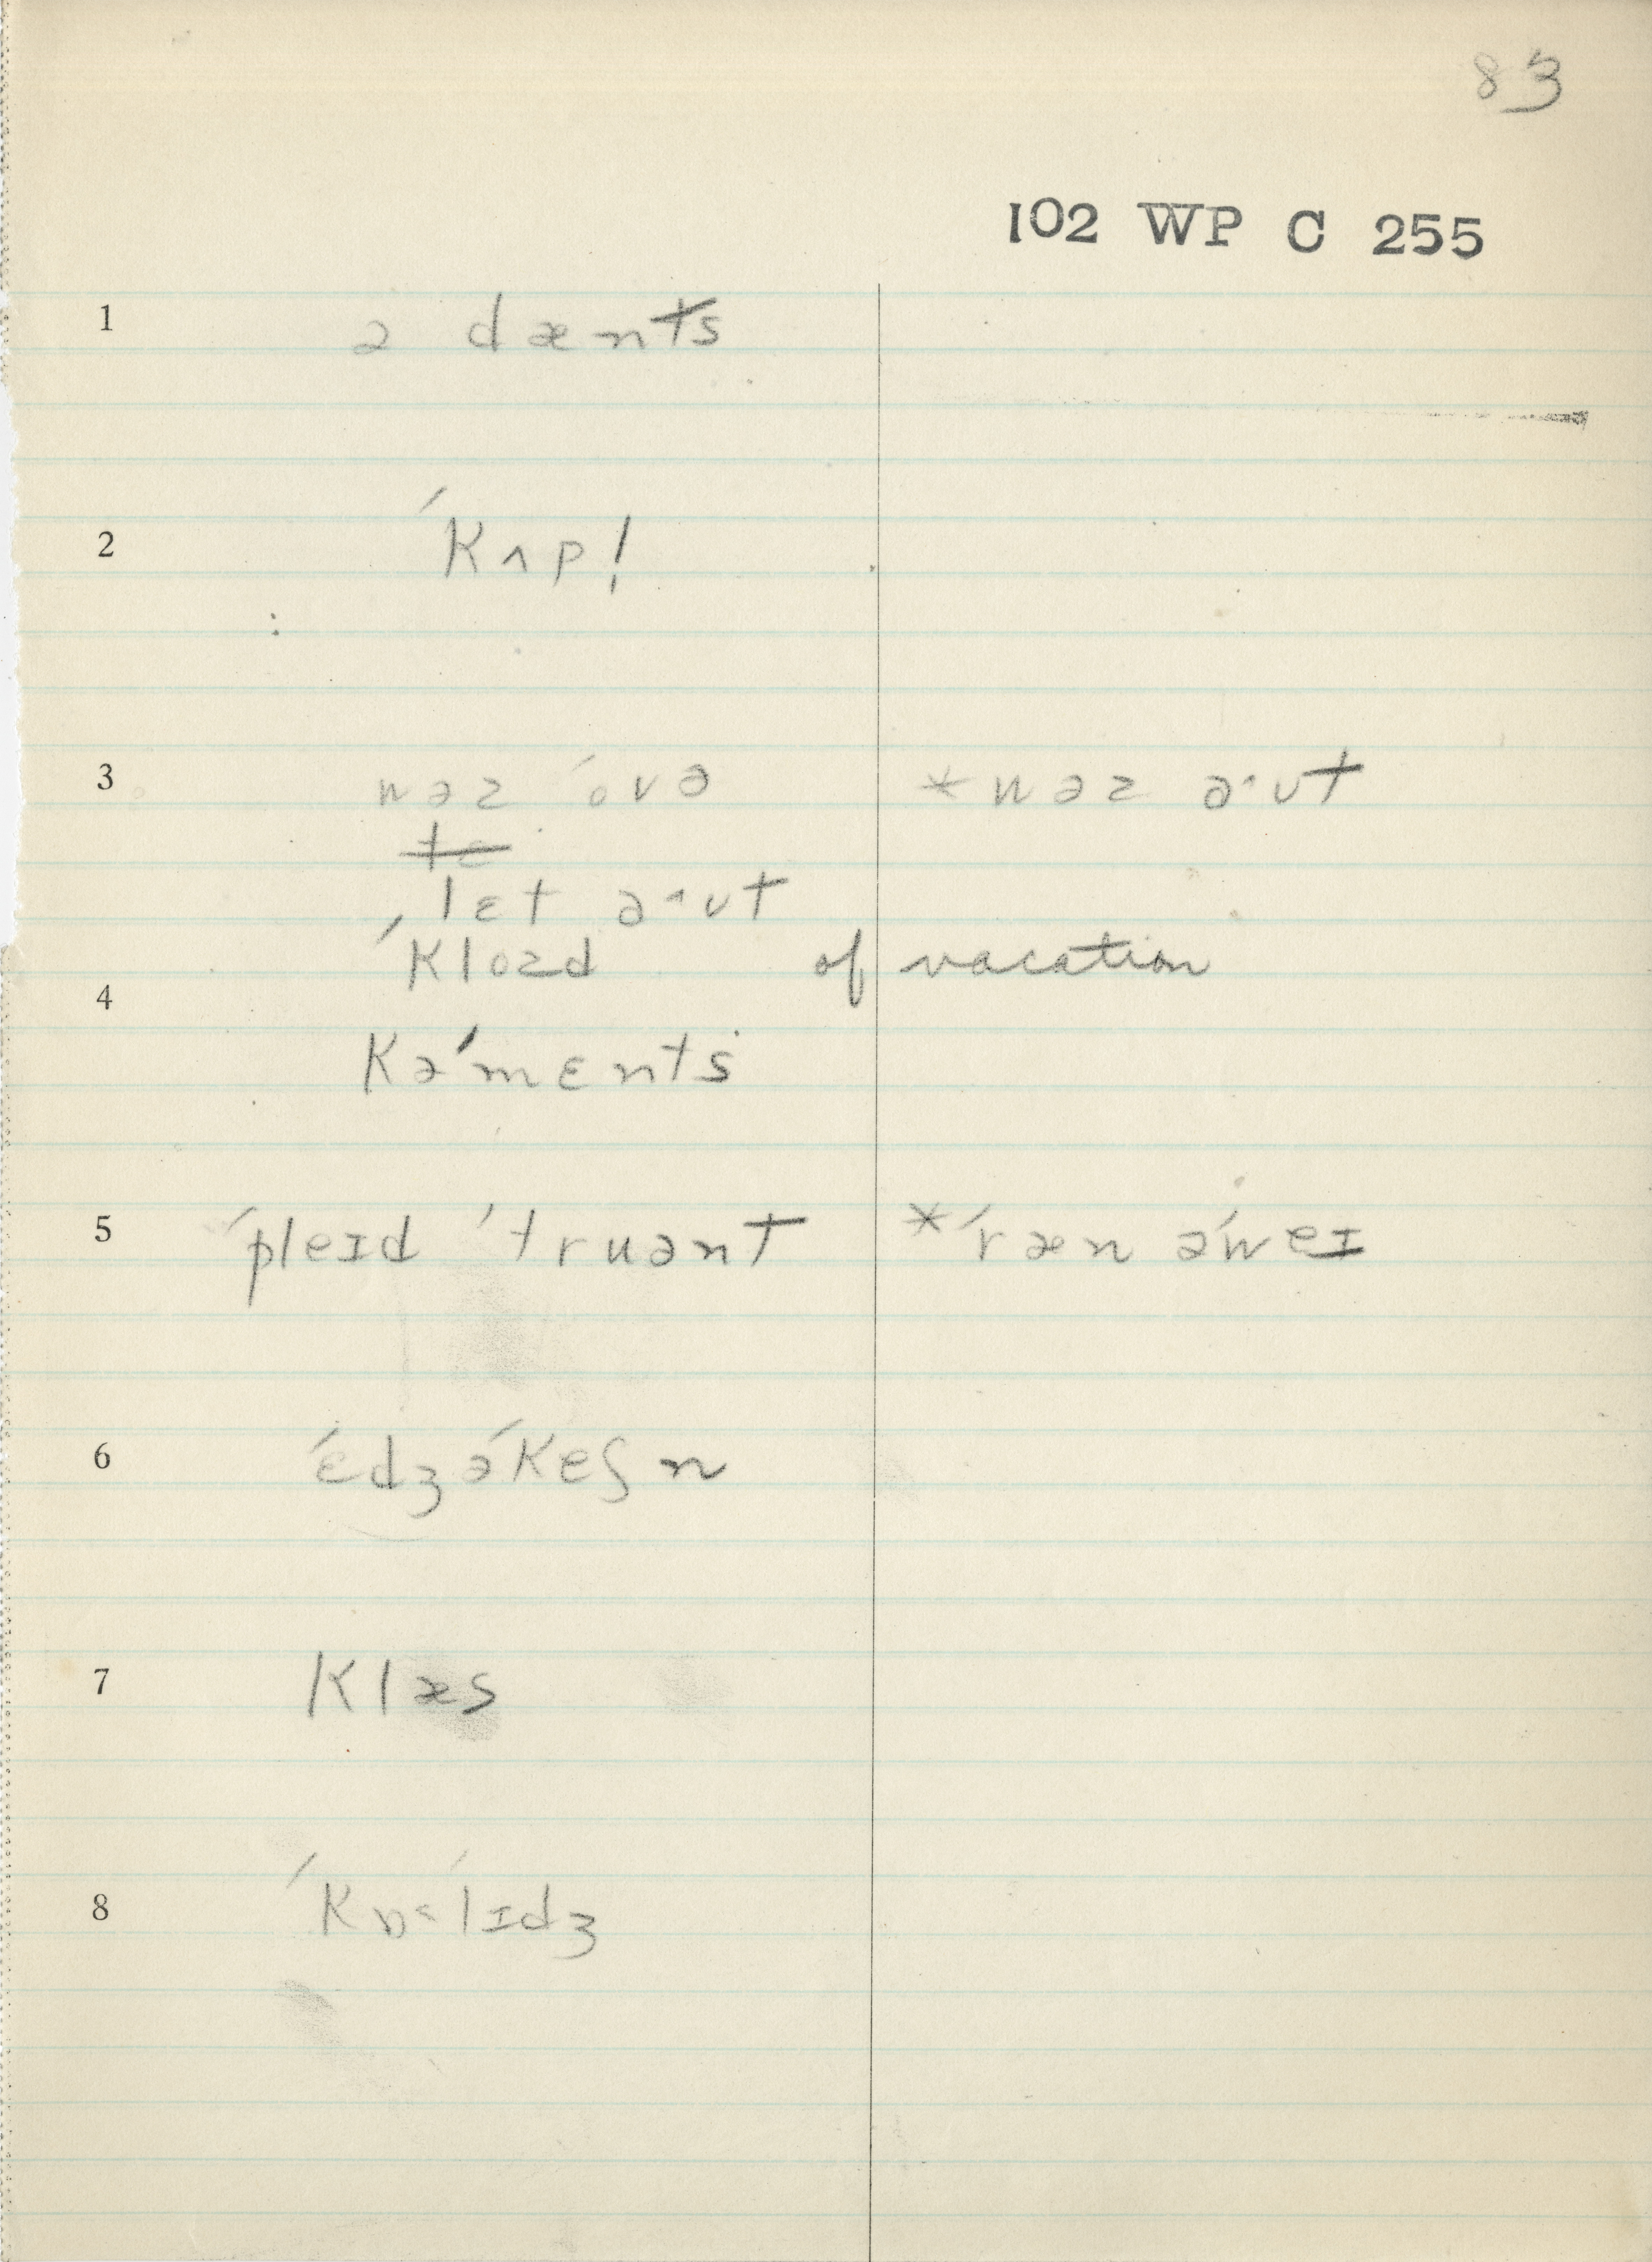 83
102 WP C 255
1 ə dænts
2 ˈkʌp!
3 wəz ˈovə *wəz əˑʊt
tɛ
ˈlɛt əˑʊt
ˈklozd of vacation
4 kəˈmɛnts
5 ˈpleɪd ˈtruənt *ˈræn əˈweɪ
6 ˈɛdʒəˈkeʃn
7 klæs
8 ˈkɒ˂ˈlɪdʒ